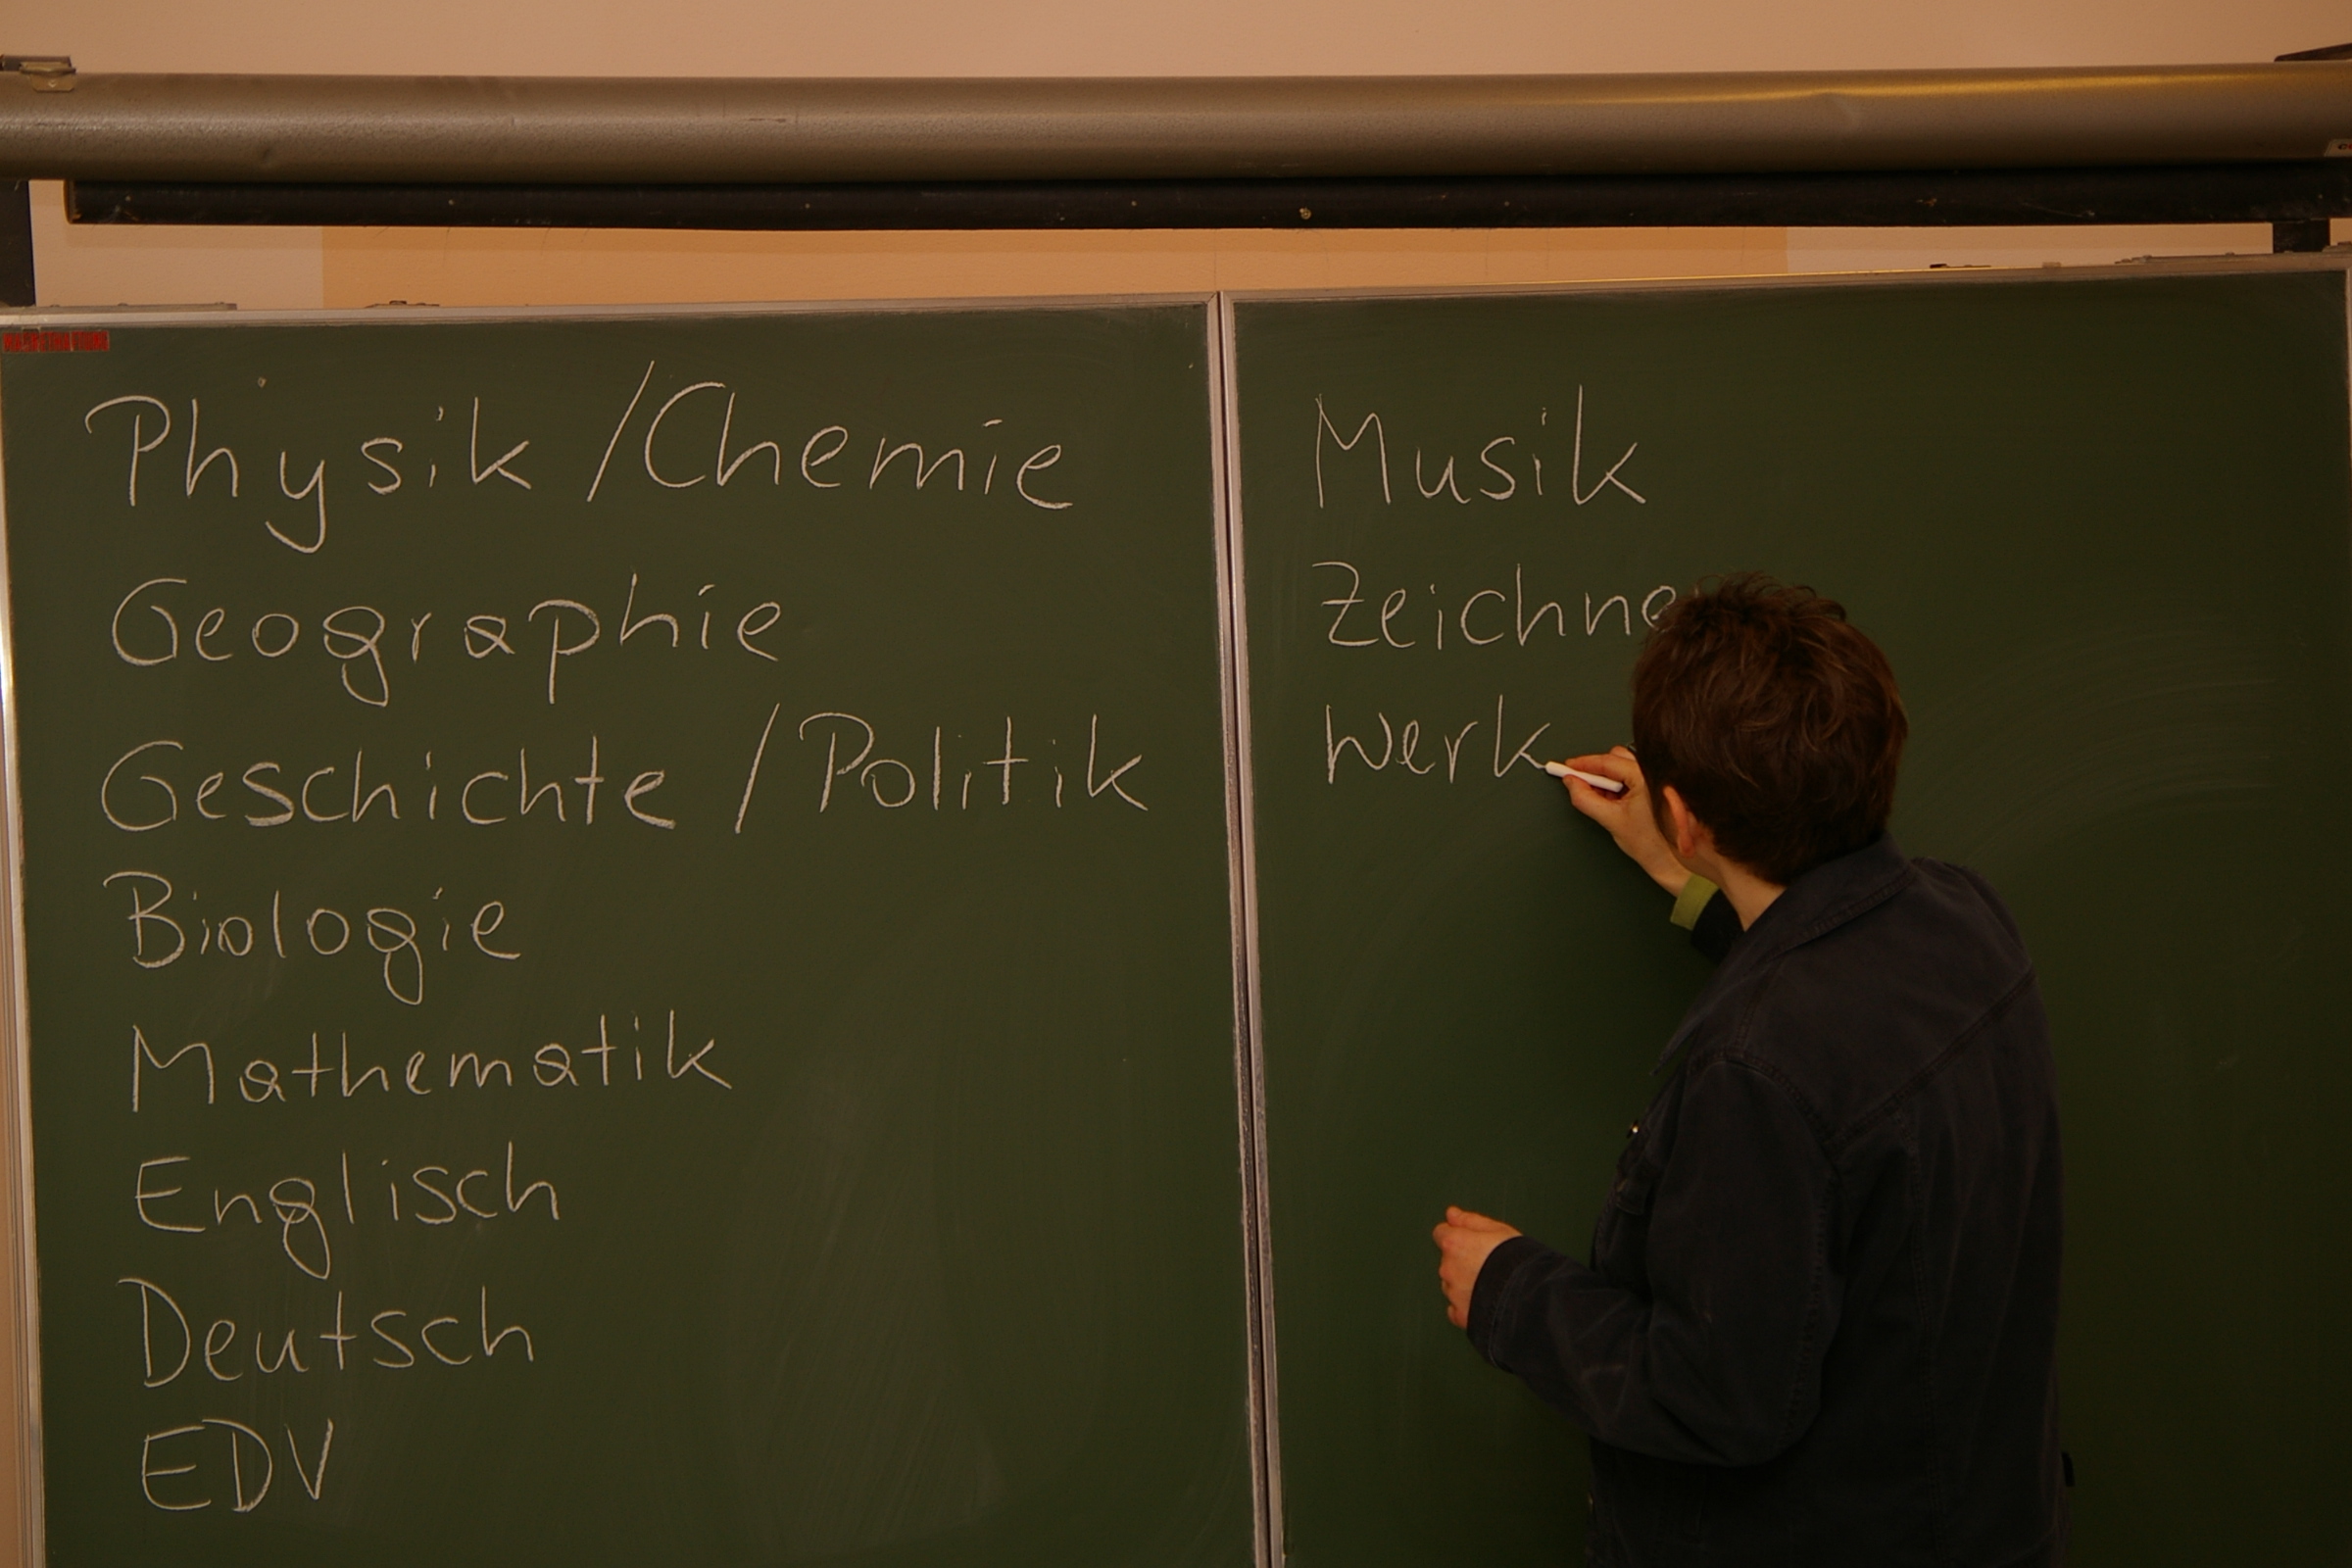 Physik / Chemie
Geographie
Geschichte / Politik
Biologie
Mathematik
Englisch
Deutsch
EDV
Musik
Zeichne
Werk